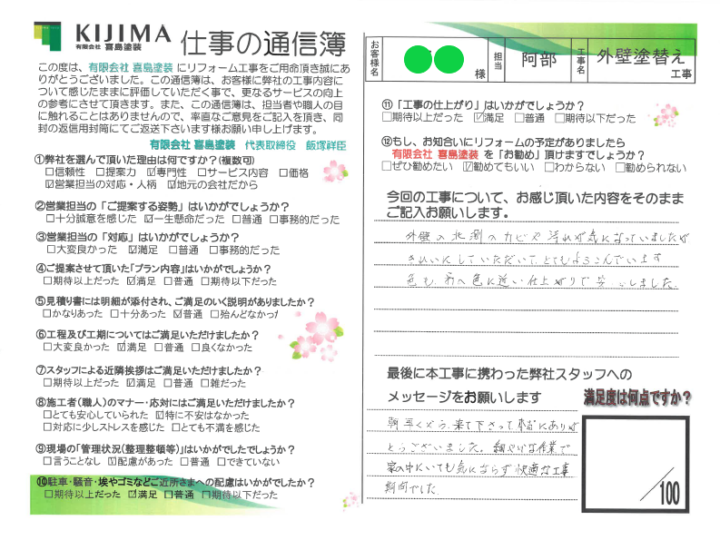 KIJIMA
有限会社 喜島塗装
仕事の通信簿
この度は、有限会社 喜島塗装 にリフォーム工事をご用命頂き誠にあ
りがとうございました。この通信簿は、お客様に弊社の工事内容に
ついて感じたままに評価していただく事で、更なるサービスの向上
の参考にさせて頂きます。また、この通信簿は、担当者や職人の目
に触れることはありませんので、率直なご意見をご記入を頂き、同
封の返信用封筒にてご返送下さいます様お願い申し上げます。
有限会社 喜島塗装 代表取締役 飯塚祥臣
①弊社を選んで頂いた理由は何ですか?(複数可)
□信頼性 □提案力 ☑専門性 □サービス内容 □価格
☑営業担当の対応・人柄 ☑地元の会社だから
②営業担当の「ご提案する姿勢」はいかがでしょうか?
□十分誠意を感じた ☑一生懸命だった □普通 □事務的だった
③営業担当の「対応」はいかがでしょうか?
□大変良かった ☑満足 □普通 □事務的だった
④ご提案させて頂いた「プラン内容」はいかがでしょうか?
□期待以上だった ☑満足 □普通 □期待以下だった
⑤見積り書には明細が添付され、ご満足のいく説明がありましたか?
□かなりあった □十分あった ☑普通 □殆んどなかった
⑥工程及び工期についてはご満足いただけましたか?
□大変良かった ☑満足 □普通 □良くなかった
⑦スタッフによる近隣挨拶はご満足いただけましたか?
□期待以上だった ☑満足 □普通 □雑だった
⑧施工者(職人)のマナー・応対にはご満足いただけましたか?
□とても安心していられた ☑特に不安はなかった
□対応に少しストレスを感じた □とても不満を感じた
⑨現場の「管理状況(整理整頓等)」はいかがでしたでしょうか?
□言うことなし ☑配慮があった □普通 □できていない
⑩駐車・騒音・埃やゴミなどご近所さまへの配慮はいかがでしたか?
□期待以上だった ☑満足 □普通 □期待以下だった
お客様名 様 担当 阿部 工事名 外壁塗替え 工事
⑪「工事の仕上がり」はいかがでしょうか?
□期待以上だった ☑満足 □普通 □期待以下だった
⑫もし、お知合いにリフォームの予定がありましたら
有限会社 喜島塗装 を「お勧め」頂けますでしょうか?
□ぜひ勧めたい ☑勧めてもいい □わからない □勧められない
今回の工事について、お感じ頂いた内容をそのまま
ご記入お願いします。
外壁の北側のカビや汚れが気になっていましたが
きれいにしていただいて、とてもよろこんでいます
色も 前の色に近い仕上がりで安心しました。
最後に本工事に携わった弊社スタッフへの
メッセージをお願いします
朝早くから来て下さって本当にありが
とうございました。細やかな作業で
家の中にいても気にならず快適な工事
期間でした
満足度は何点ですか?
/100